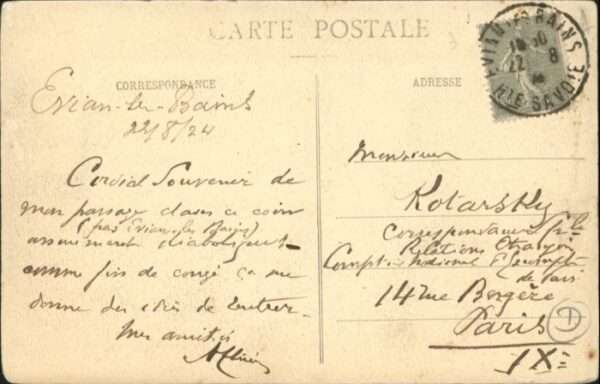 CARTE POSTALE
CORRESPONDANCE
Evian-les-Bains
22/8/24
Cordial Souvenir de
mon passage dans ce coin
(pas Evian-les-Bains)
diaboliquement
comme fin de congé ça me
donne des idées de rentrer.
Mes amitiés
ADRESSE
EVIAN-LES-BAINS
22 8
HTE SAVOIE
Monsieur
Kotarsky
Correspondance
Relations Etrangères
Comptoir National d'Escompte
de Paris
14 rue Bergère
Paris
IXe
D